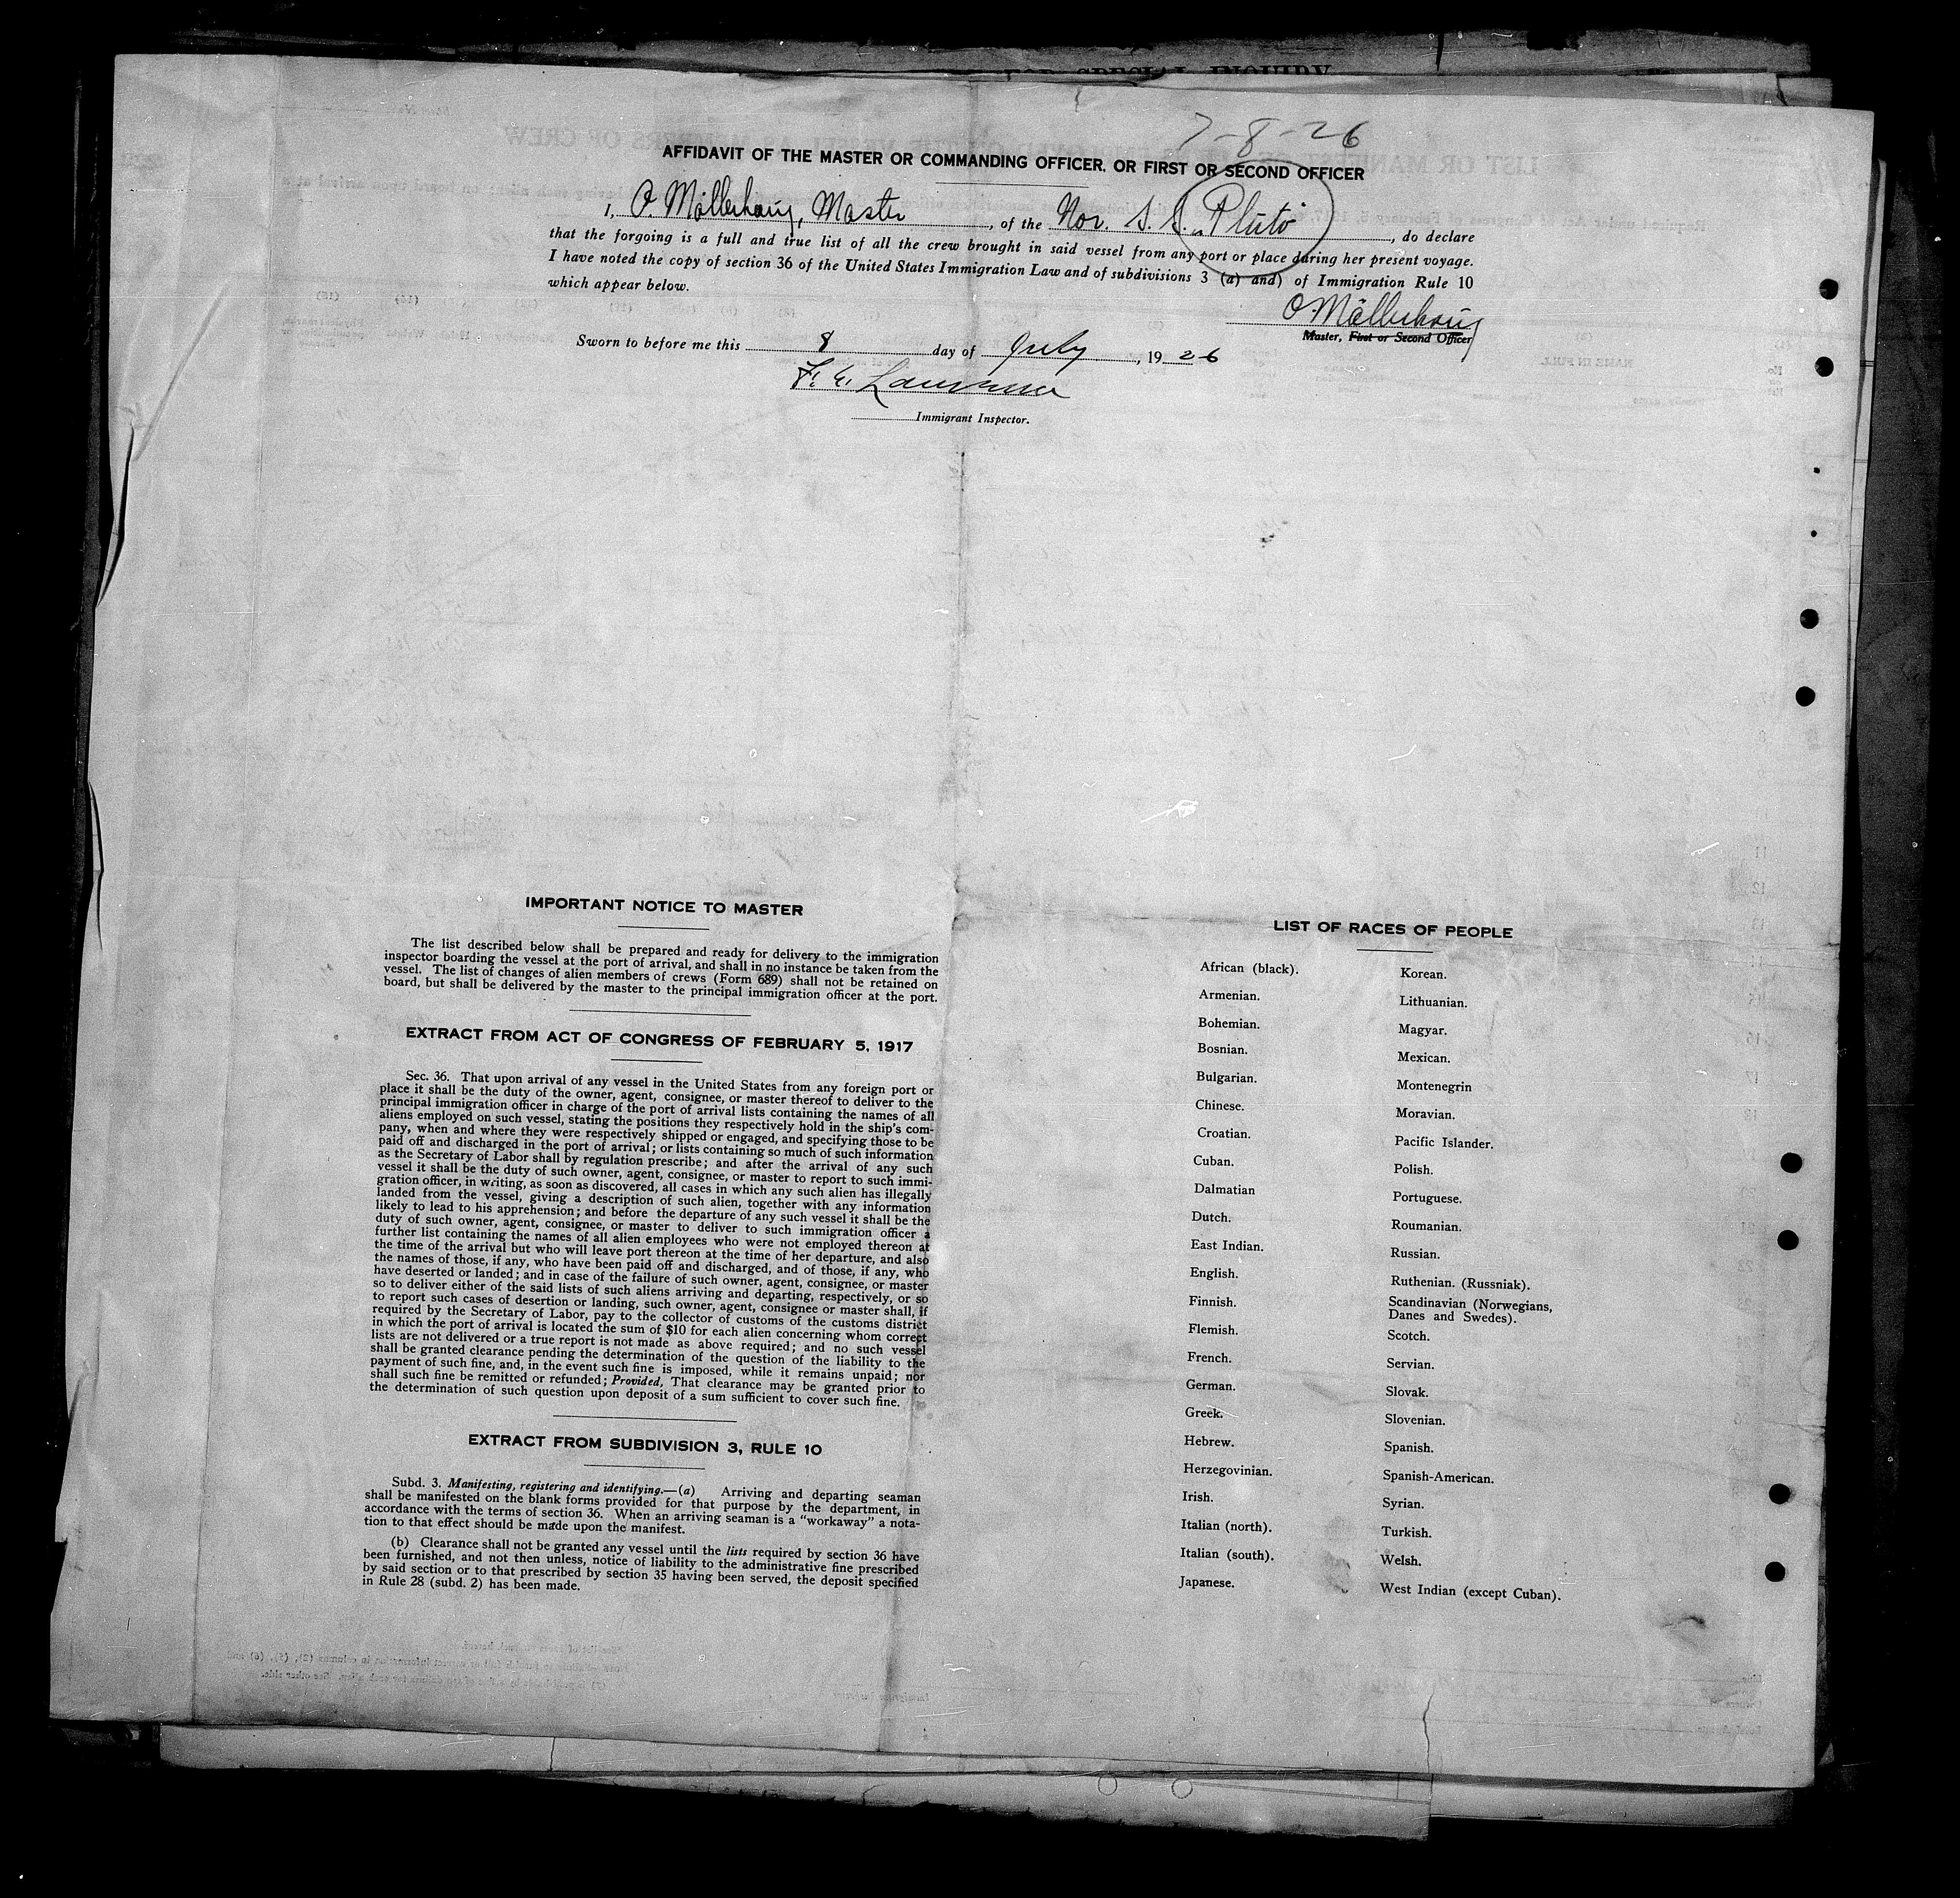 7-8-26
AFFIDAVIT OF THE MASTER OR COMMANDING OFFICER, OR FIRST OR SECOND OFFICER
I, O. Möllerhaug, Master, of the Nor. S. S. "Pluto", do declare
that the forgoing is a full and true list of all the crew brought in said vessel from any port or place during her present voyage.
I have noted the copy of section 36 of the United States Immigration Law and of subdivisions 3 (a) and) of Immigration Rule 10
which appear below.
O. Möllerhaug
Master, First or Second Officer
Sworn to before me this 8 day of July, 1926
Immigrant Inspector.
IMPORTANT NOTICE TO MASTER
The list described below shall be prepared and ready for delivery to the immigration
inspector boarding the vessel at the port of arrival, and shall in no instance be taken from the
vessel. The list of changes of alien members of crews (Form 689) shall not be retained on
board, but shall be delivered by the master to the principal immigration officer at the port.
EXTRACT FROM ACT OF CONGRESS OF FEBRUARY 5, 1917
Sec. 36. That upon arrival of any vessel in the United States from any foreign port or
place it shall be the duty of the owner, agent, consignee, or master thereof to deliver to the
principal immigration officer in charge of the port of arrival lists containing the names of all
aliens employed on such vessel, stating the positions they respectively hold in the ship's com-
pany, when and where they were respectively shipped or engaged, and specifying those to be
paid off and discharged in the port of arrival; or lists containing so much of such information
as the Secretary of Labor shall by regulation prescribe; and after the arrival of any such
vessel it shall be the duty of such owner, agent, consignee, or master to report to such immi-
gration officer, in writing, as soon as discovered, all cases in which any such alien has illegally
landed from the vessel, giving a description of such alien, together with any information
likely to lead to his apprehension; and before the departure of any such vessel it shall be the
duty of such owner, agent, consignee, or master to deliver to such immigration officer a
further list containing the names of all alien employees who were not employed thereon at
the time of the arrival but who will leave port thereon at the time of her departure, and also
the names of those, if any, who have been paid off and discharged, and of those, if any, who
have deserted or landed; and in case of the failure of such owner, agent, consignee, or master
so to deliver either of the said lists of such aliens arriving and departing, respectively, or so
to report such cases of desertion or landing, such owner, agent, consignee or master shall, if
required by the Secretary of Labor, pay to the collector of customs of the customs district
in which the port of arrival is located the sum of $10 for each alien concerning whom correct
lists are not delivered or a true report is not made as above required; and no such vessel
shall be granted clearance pending the determination of the question of the liability to the
payment of such fine, and, in the event such fine is imposed, while it remains unpaid; nor
shall such fine be remitted or refunded; Provided, That clearance may be granted prior to
the determination of such question upon deposit of a sum sufficient to cover such fine.
EXTRACT FROM SUBDIVISION 3, RULE 10
Subd. 3. Manifesting, registering and identifying.—(a) Arriving and departing seaman
shall be manifested on the blank forms provided for that purpose by the department, in
accordance with the terms of section 36. When an arriving seaman is a "workaway" a nota-
tion to that effect should be made upon the manifest.
(b) Clearance shall not be granted any vessel until the lists required by section 36 have
been furnished, and not then unless, notice of liability to the administrative fine prescribed
by said section or to that prescribed by section 35 having been served, the deposit specified
in Rule 28 (subd. 2) has been made.
LIST OF RACES OF PEOPLE
African (black).
Armenian.
Bohemian.
Bosnian.
Bulgarian.
Chinese.
Croatian.
Cuban.
Dalmatian
Dutch.
East Indian.
English.
Finnish.
Flemish.
French.
German.
Greek.
Hebrew.
Herzegovinian.
Irish.
Italian (north).
Italian (south).
Japanese.
Korean.
Lithuanian.
Magyar.
Mexican.
Montenegrin
Moravian.
Pacific Islander.
Polish.
Portuguese.
Roumanian.
Russian.
Ruthenian. (Russniak).
Scandinavian (Norwegians,
Danes and Swedes).
Scotch.
Servian.
Slovak.
Slovenian.
Spanish.
Spanish-American.
Syrian.
Turkish.
Welsh.
West Indian (except Cuban).